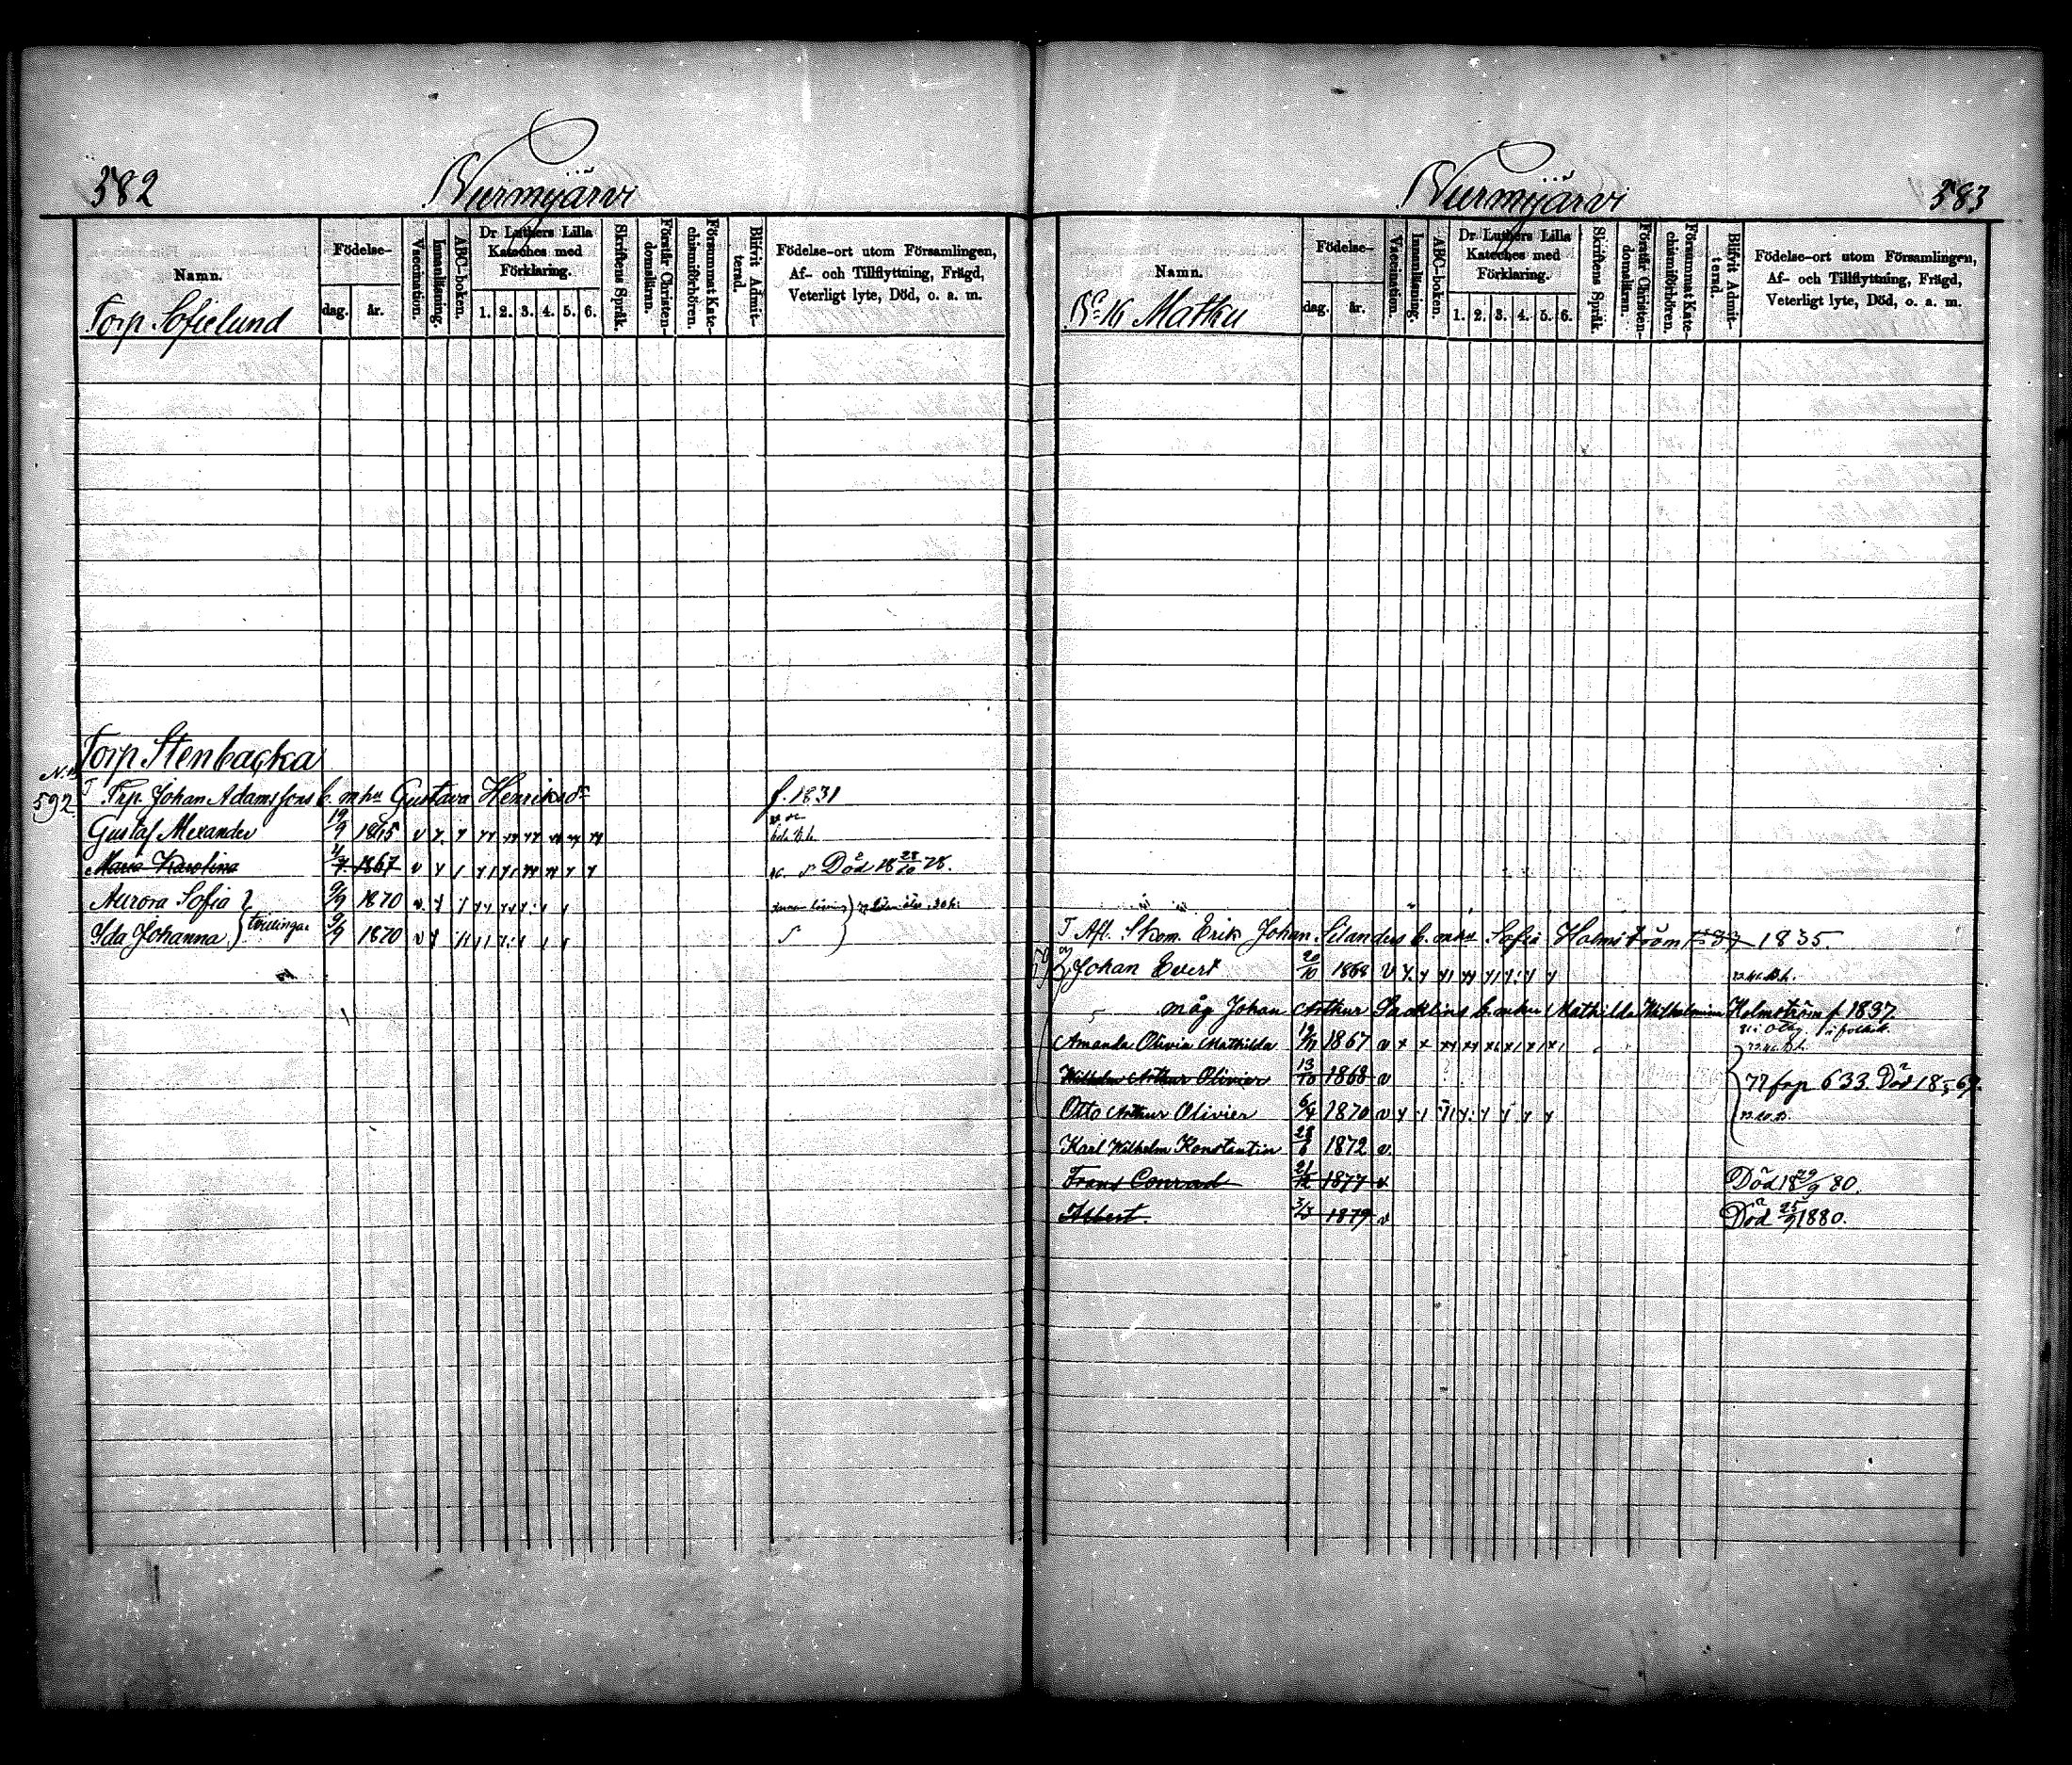 582
Nurmijärvi
Namn.
Födelse-
dag.
år.
Vaccination.
Innanläsning.
ABC-boken.
Dr Luthers Lilla
Kateches med
Förklaring.
1. 2. 3. 4. 5. 6.
Skriftens Språk.
Förstår Christen-
domsläran.
Försummat Kate-
chismiförhören.
Blifvit Admit-
terad.
Födelse-ort utom Församlingen,
Af- och Tillflyttning, Frägd,
Veterligt lyte, Död, o. a. m.
Torp. Sofielund
Torp Stenbacka
592
T Trp. Johan Adamssons b. m hu Gustava Henriksdr f. 1831
Gustaf Alexander 19/9 1865 v
Maria Karolina 1867 v Död 18 28/10 78.
Aurora Sofia 9/9 1870 v.
Ida Johanna } tvillingar 9/9 1870 v
583
Nurmijärvi
Namn.
Födelse-
dag.
år.
Vaccination.
Innanläsning.
ABC-boken.
Dr Luthers Lilla
Kateches med
Förklaring.
1. 2. 3. 4. 5. 6.
Skriftens Språk.
Förstår Christen-
domsläran.
Försummat Kate-
chismiförhören.
Blifvit Admit-
terad.
Födelse-ort utom Församlingen,
Af- och Tillflyttning, Frägd,
Veterligt lyte, Död, o. a. m.
No 16 Matku
T Afl. Skom. Erik Johan Silanders b. m hu Sofia Holmström 1835.
Johan Evert 20/10 1868 v
måg Johan Arthur b. m hu Mathilda Wilhelmina Holmström f. 1837
Amanda Olivia Mathilda 1867 v
Wilhelm Arthur Olivier 13/10 1868 v 77 fap 633. Död
Otto Arthur Olivier 1870 v
Karl Wilhelm Konstantin 1872 v.
Frans Conrad 21/12 1877 v Död 18 29/9 80.
Albert. 1879 v Död 25/9 1880.